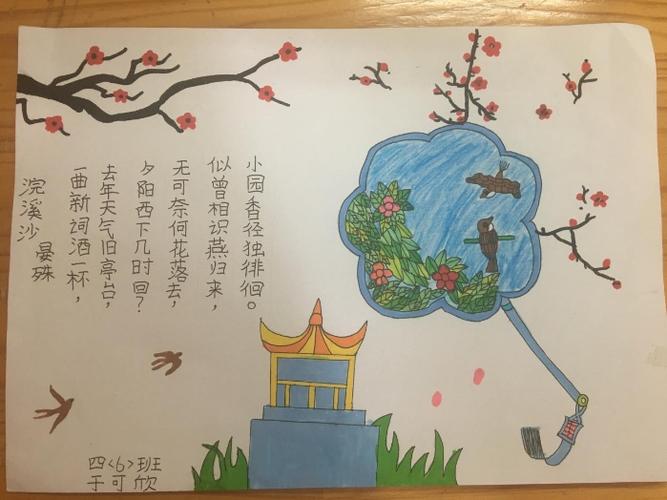 浣溪沙
晏殊
一曲新词酒一杯，
去年天气旧亭台，
夕阳西下几时回？
无可奈何花落去，
似曾相识燕归来，
小园香径独徘徊。
四<6>班
于可欣